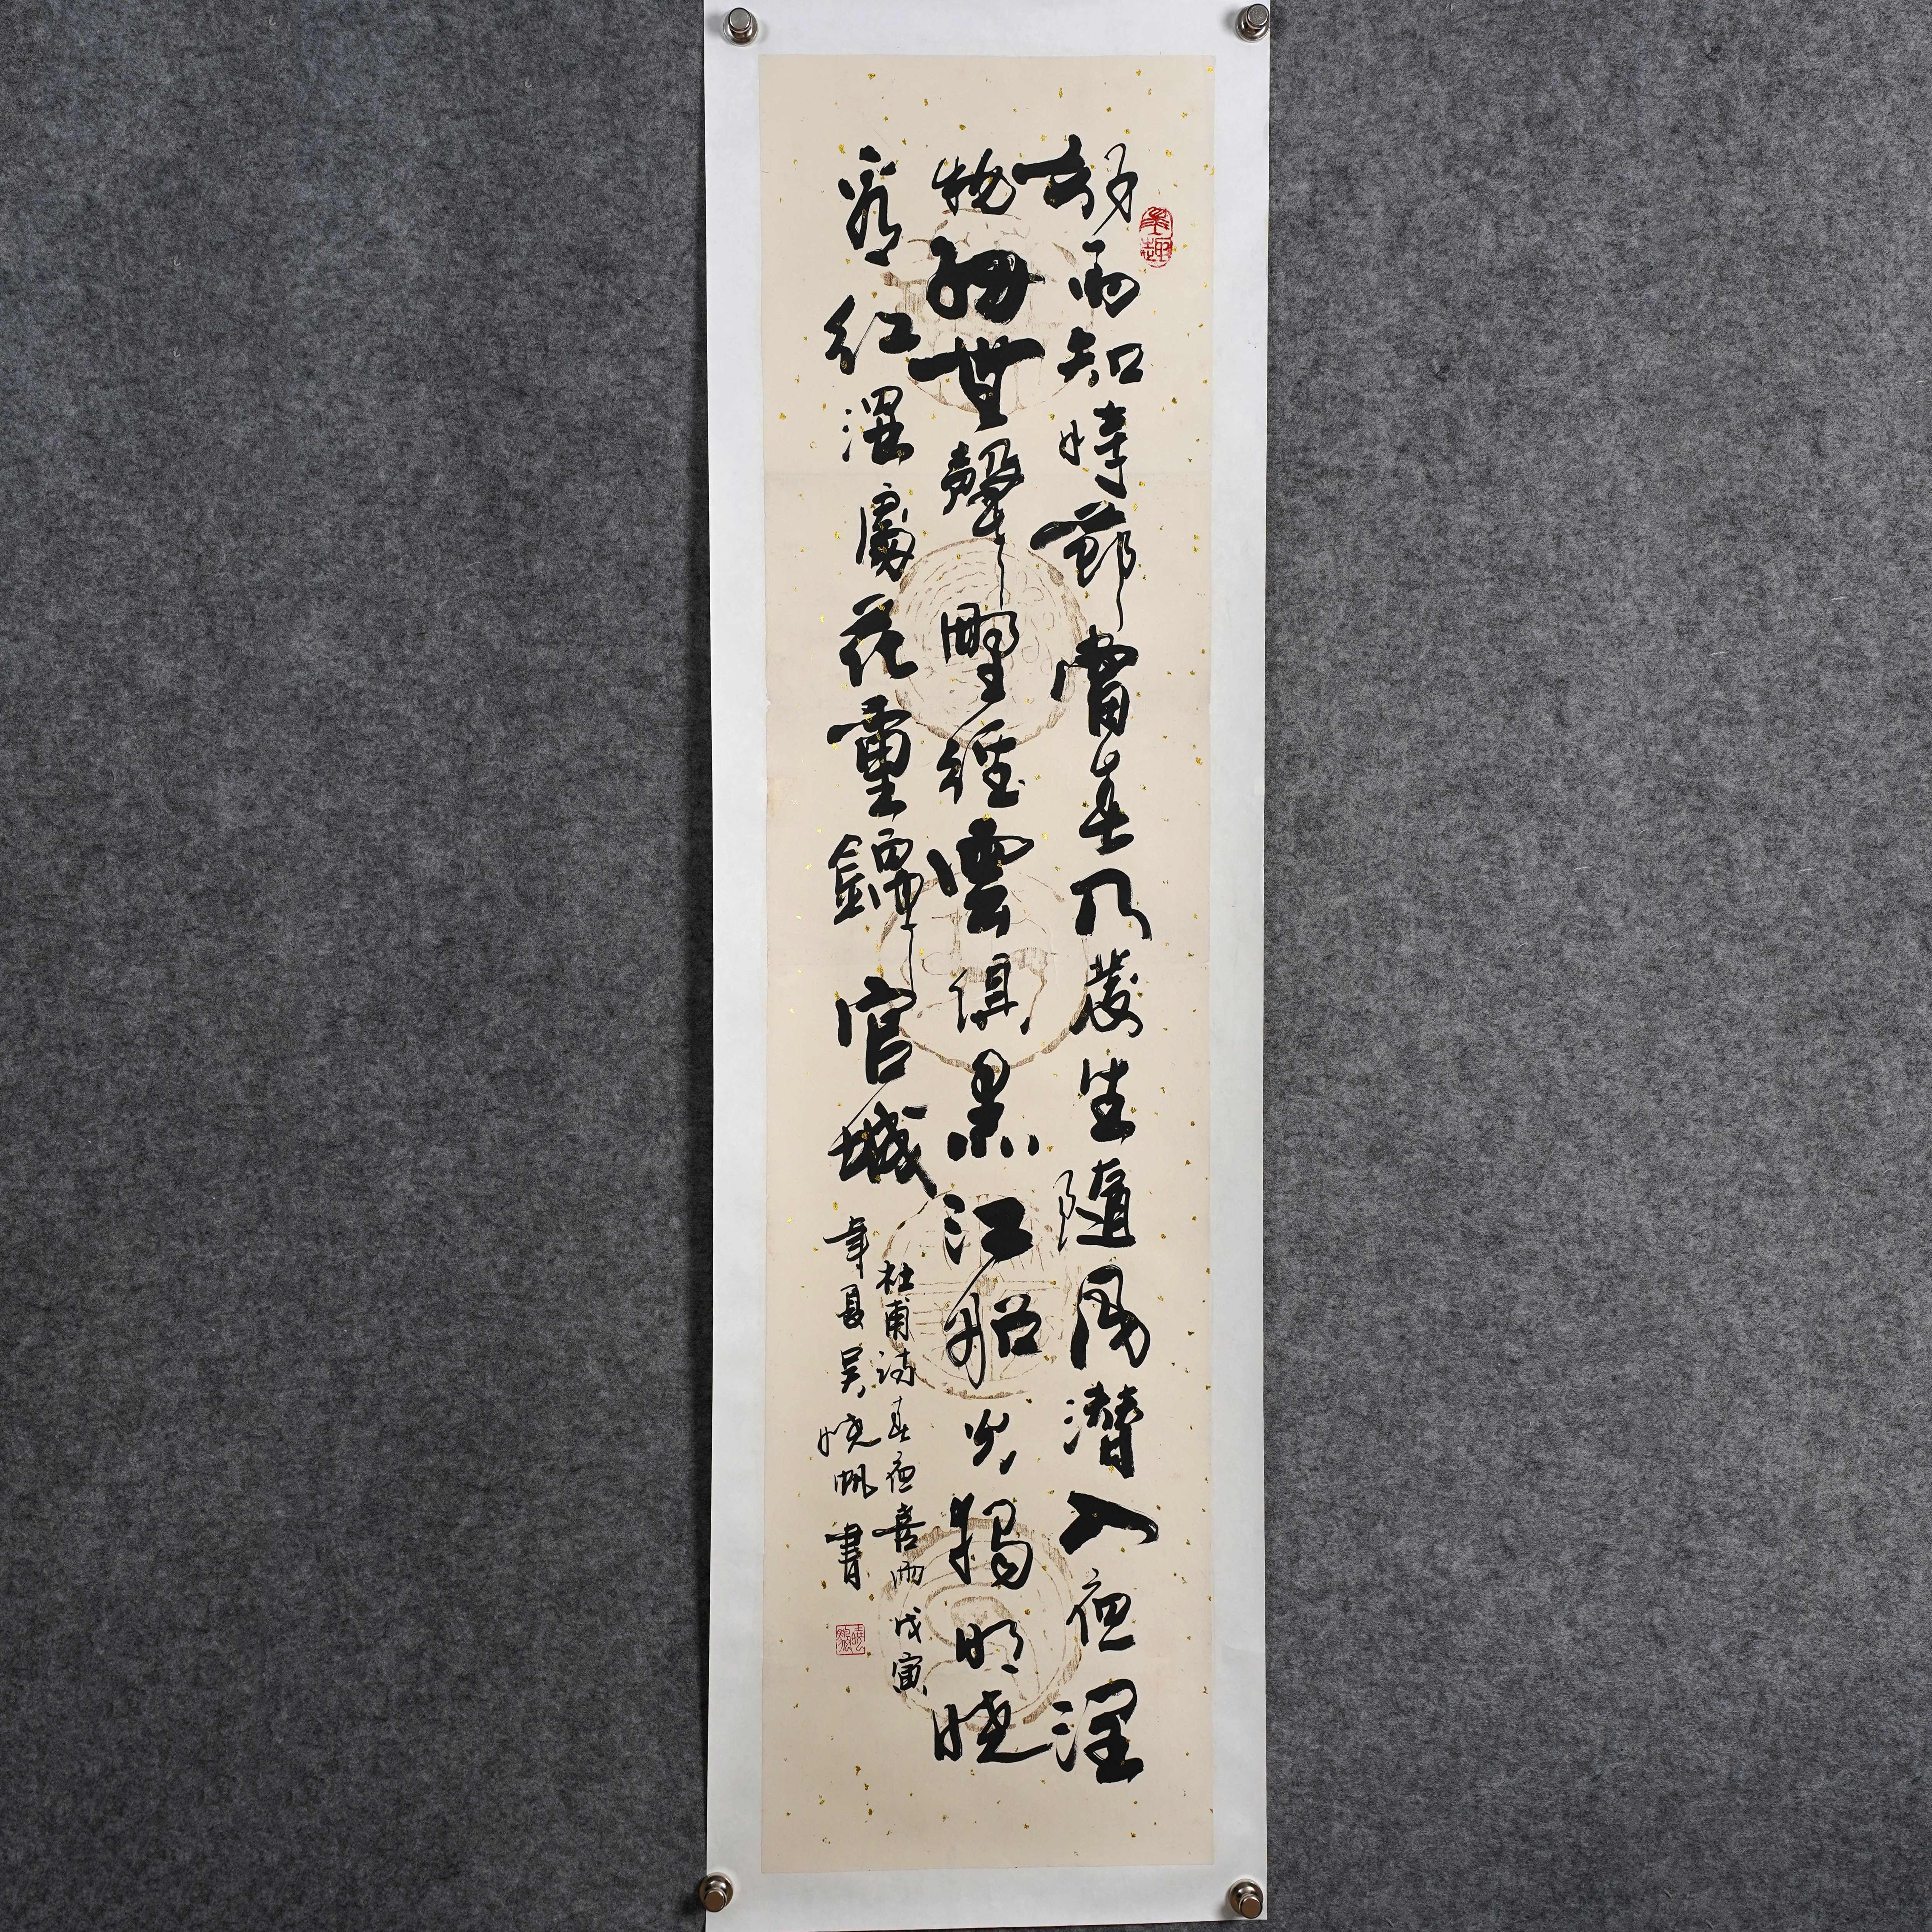 墨趣
好雨知時節當春乃發生隨風潛入夜潤
物細無聲野徑雲俱黑江船火獨明曉
看紅濕處花重錦官城
杜甫詩春夜喜雨戊寅
年夏吴曉帆書